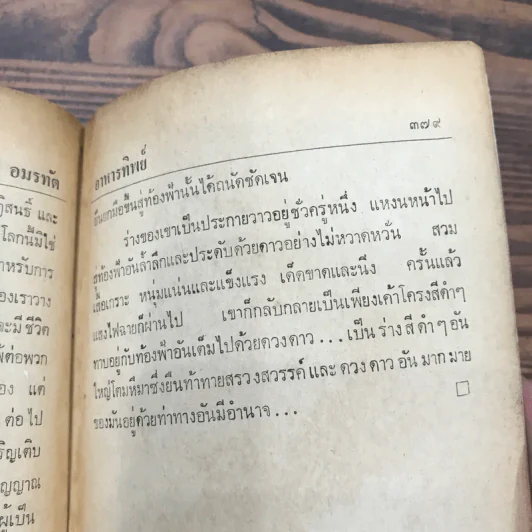 อมรทัต
ๆสินธุ์ และ
โลกนี้มิใช่
าหรับการ
องเราวาง
ะมี ชีวิต
ต่อพวก
อง แต่
ต่อไป
ริญเติบ
ญญาณ
ผู้เป็น
อาหารทิพย์ ๓๗๙
ยืนยกมือขึ้นสู่ท้องฟ้านั้นได้ถนัดชัดเจน
ร่างของเขาเป็นประกายวาวอยู่ชั่วครู่หนึ่ง แหงนหน้าไป
สู่ท้องฟ้าอันล้ำลึกและประดับด้วยดาวอย่างไม่หวาดหวั่น สวม
เสื้อเกราะ หนุ่มแน่นและแข็งแรง เด็ดขาดและนิ่ง ครั้นแล้ว
แสงไฟฉายก็ผ่านไป เขาก็กลับกลายเป็นเพียงเค้าโครงสีดำๆ
ทาบอยู่กับท้องฟ้าอันเต็มไปด้วยดวงดาว . . . เป็น ร่าง สี ดำ ๆ อัน
ใหญ่โตมหึมาซึ่งยืนท้าทายสรวงสวรรค์ และ ดวง ดาว อัน มาก มาย
ของมันอยู่ด้วยท่าทางอันมีอำนาจ . . .